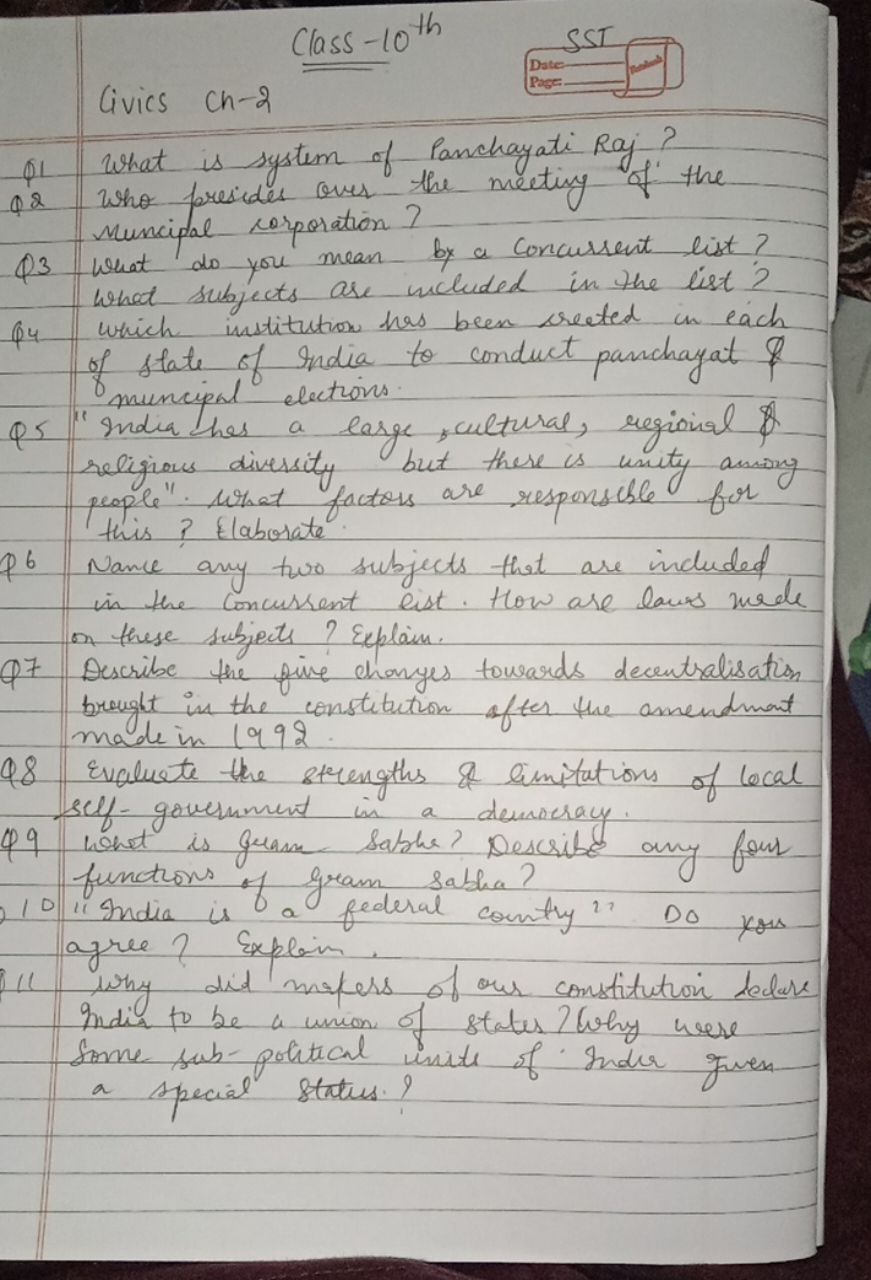 Class-10th
SST
Date:
Page:
Civics Ch-2
Q1 What is system of Panchayati Raj ?
Q2 Who presides over the meeting of the
Muncipal corporation ?
Q3 What do you mean by a Concurrent list ?
What subjects are included in the list ?
Q4 Which institution has been created in each
of state of India to conduct panchayat &
muncipal elections.
Q5 "India has a large, cultural, regional &
religious diversity but there is unity among
people". What factors are responsible for
this ? Elaborate.
Q6 Name any two subjects that are included
in the Concurrent list. How are laws made
on these subjects ? Explain.
Q7 Describe the five changes towards decentralisation
brought in the constitution after the amendment
made in 1992.
Q8 Evaluate the strengths & limitations of local
self-government in a democracy.
Q9 What is gram Sabha? Describe any four
functions of gram sabha?
10 "India is a federal country" Do you
agree ? Explain.
11 Why did makers of our constitution declare
India to be a union of states? Why were
Some sub-political units of India given
a special status.?